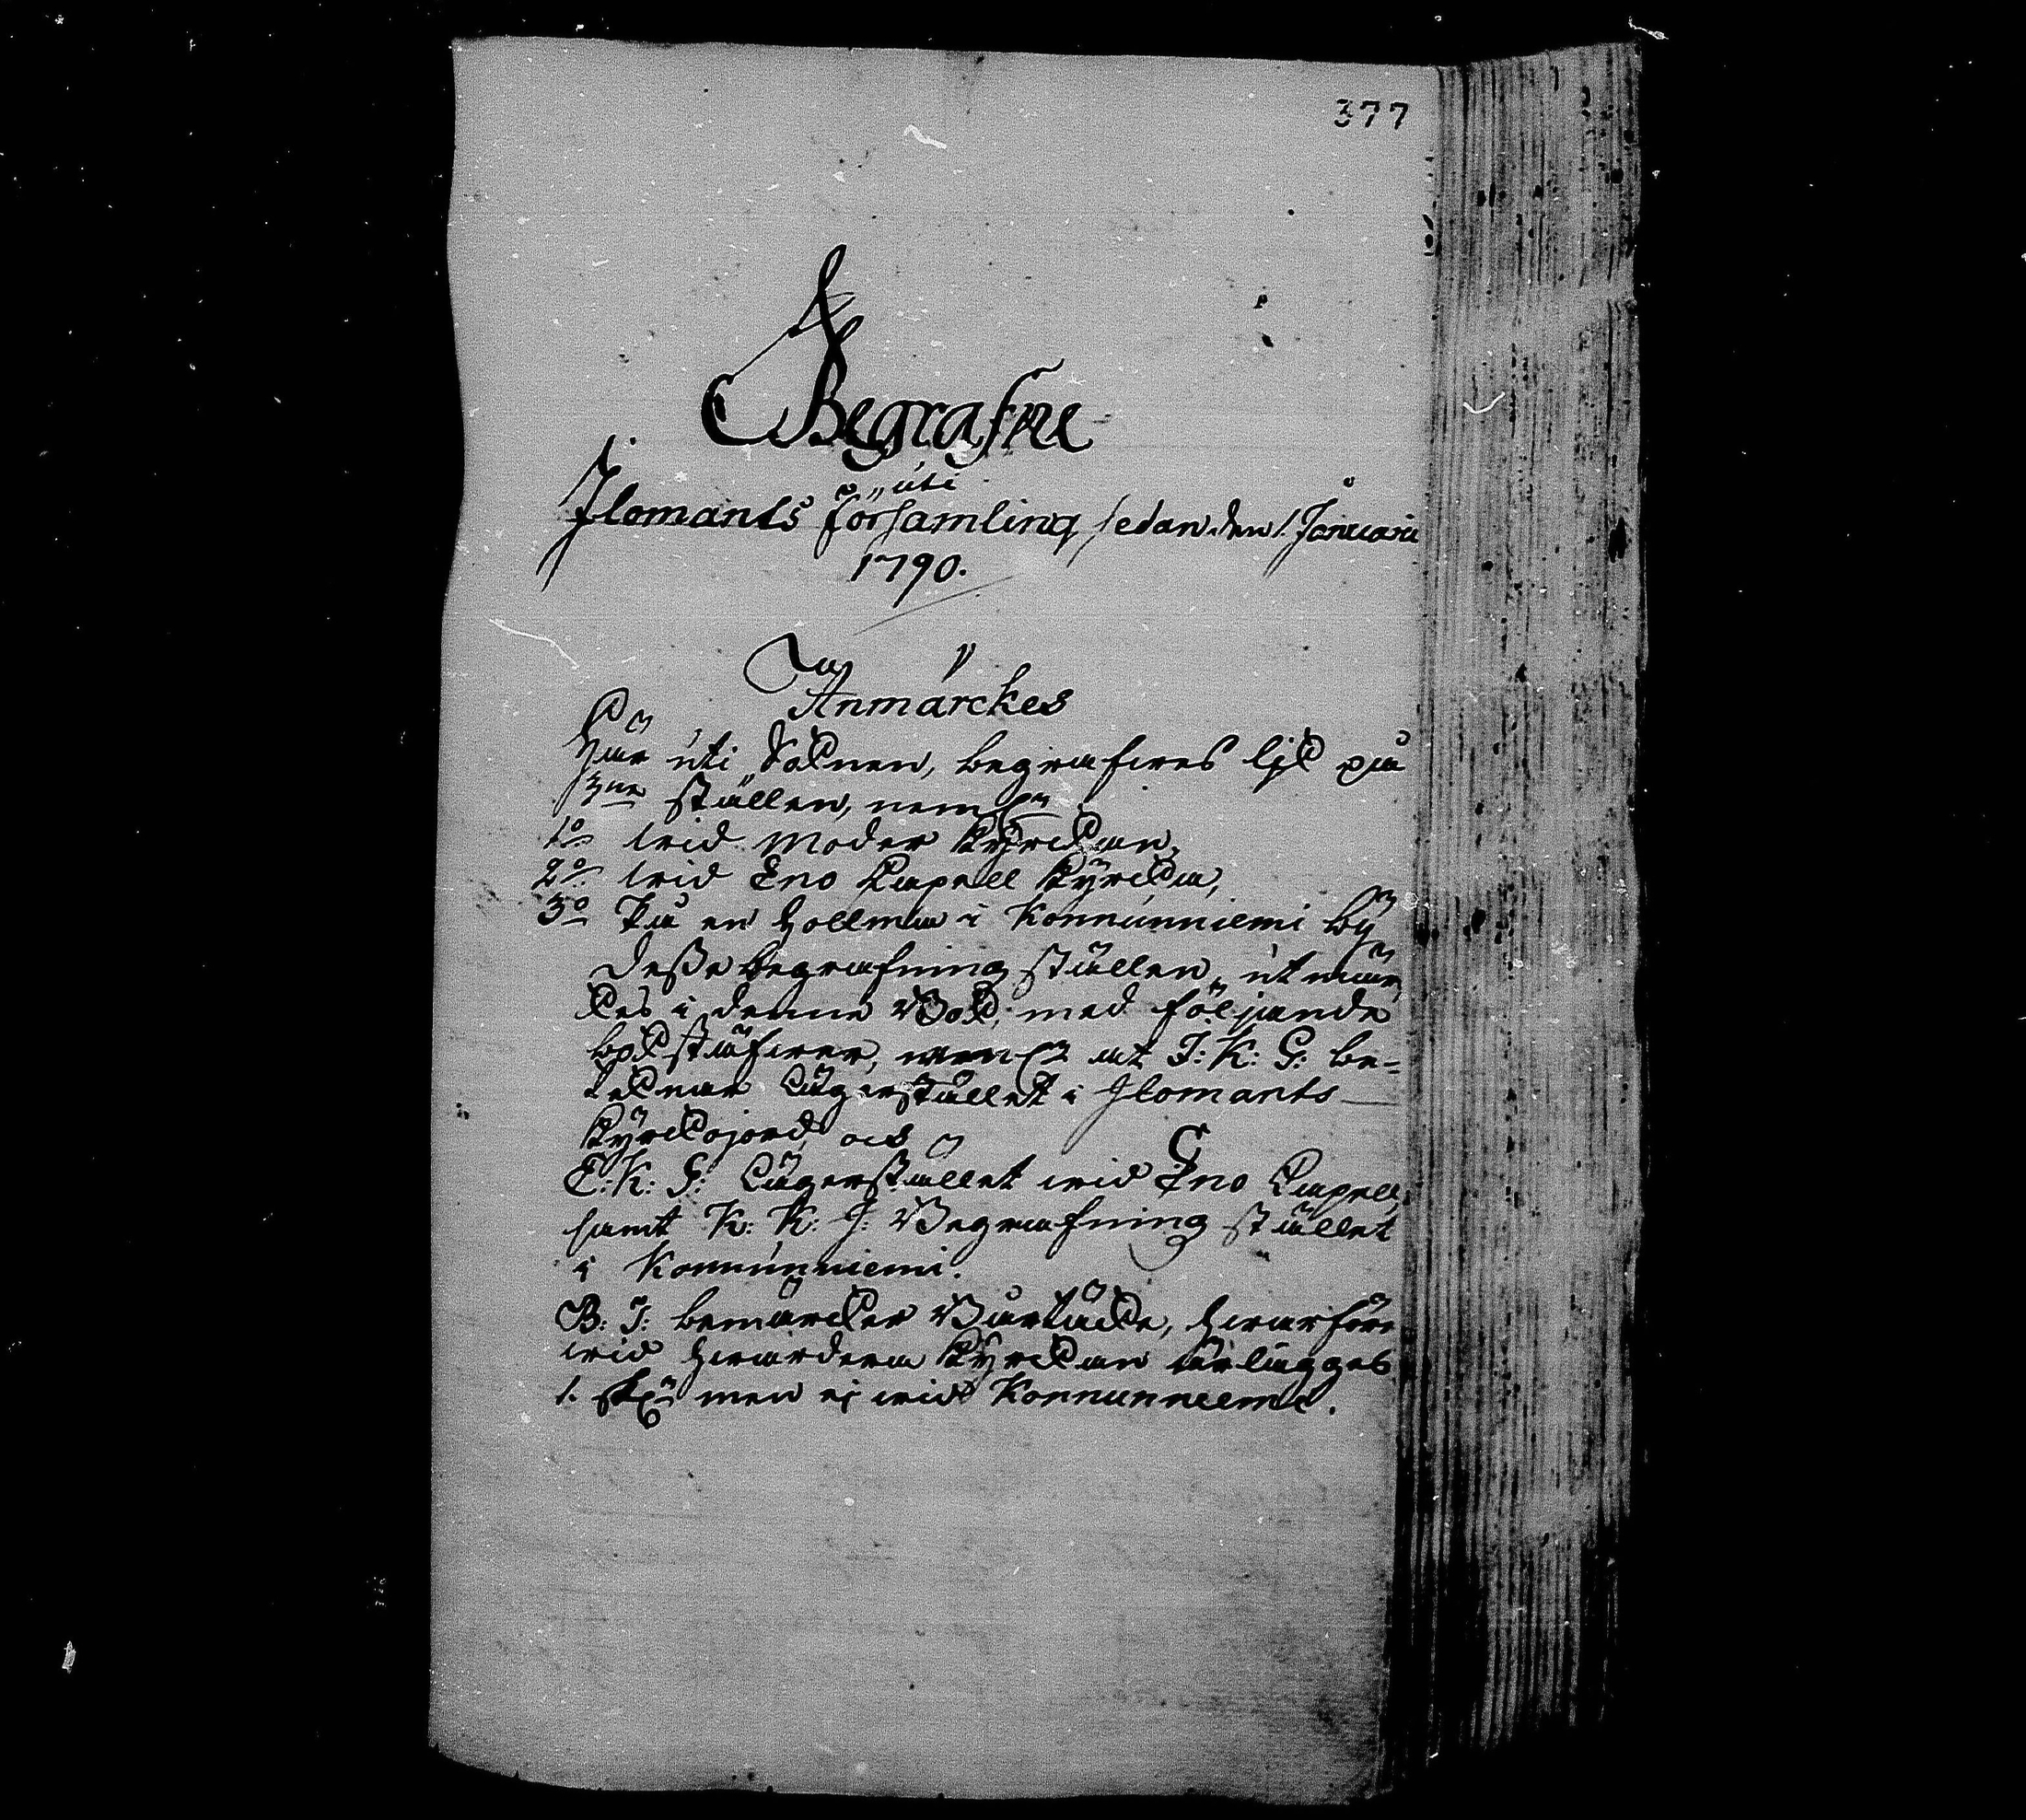 377
Begrafne
uti
Ilomants församling sedan den 1. Januarii
1790.
Anmärckes
Här uti Soknen, begrafwes lijk på
3ne ställen, neml:n
1o wid Moder Kyrckan,
2o wid Eno Capell Kyrcka,
3o På en Hollma i Konnunniemi by
Desse begrafning ställen utmär,
kes i denna Bok, med följande
bokstäfwer, neml:n at I: K: G: be=
teknar Lägerstället i Ilomants
Kyrckojord, och
E: K: G: Lägerstället wid Eno Capell,
samt K: K: G: Begrafning stället
i Konnunniemi.
B: T: bemärcker Bårtäcke, hwarföre
wid hwardera Kyrckan ärlägges
1. men ej wid Konnunniemi.